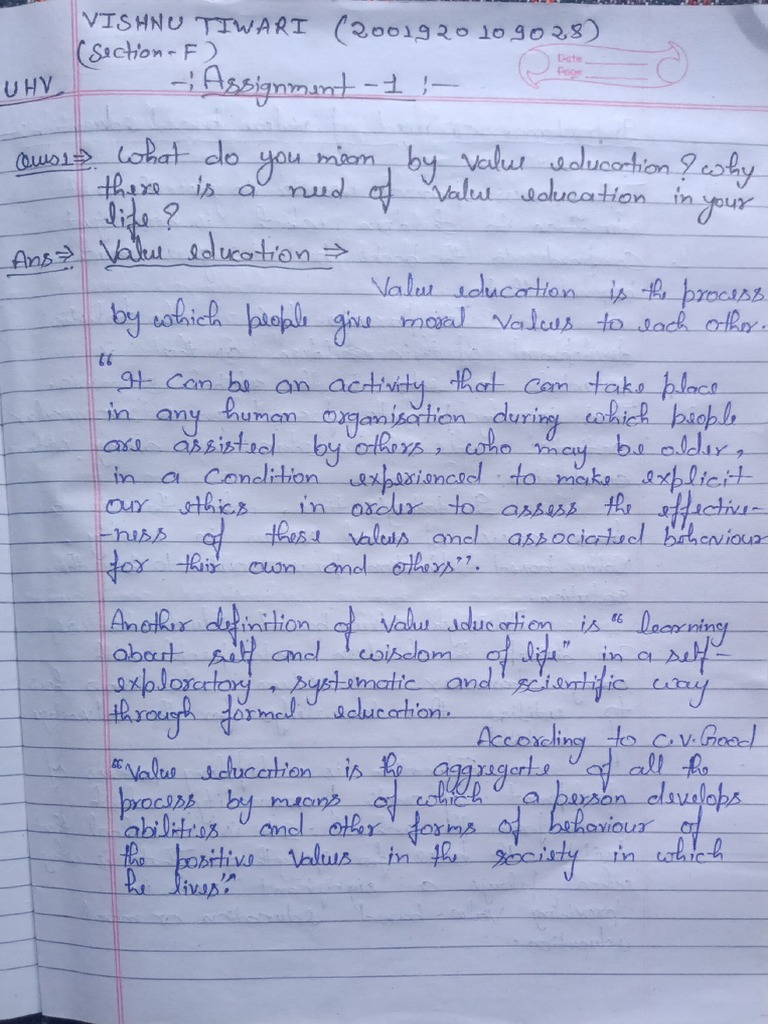 VISHNU TIWARI (2001920109028)
(Section-F)
Date
Page
UHV -: Assignment - 1 :-
Ques1⇒ What do you mean by value education? why
there is a need of value education in your
life?
Ans⇒ Value education ⇒
Value education is the process
by which people give moral values to each other.
"
It can be an activity that can take place
in any human organisation during which people
are assisted by others, who may be older,
in a condition experienced to make explicit
our ethics in order to assess the effective-
-ness of these values and associated behaviour
for their own and others".
Another definition of value education is "learning
about self and wisdom of life" in a self-
exploratory, systematic and scientific way
through formal education.
According to C.V. Good
"Value education is the aggregate of all the
process by means of which a person develops
abilities and other forms of behaviour of
the positive values in the society in which
he lives".